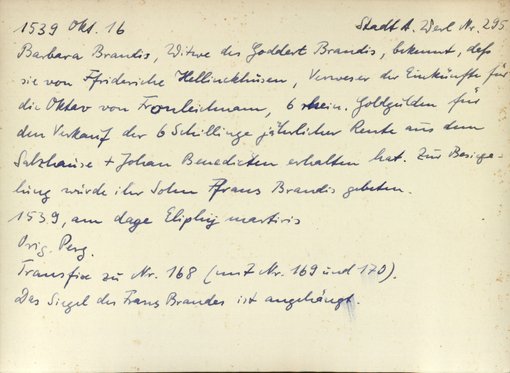 1539 Okt. 16 Stadt A. Werl Nr. 295
Barbara Brandis, Witwe des Goddert Brandis, bekennt, daß
sie von Ffrideriche Hellinckhusen, Verweser der Einkünfte für
die Oktav von Fronleichnam, 6 rhein. Goldgulden für
den Verkauf der 6 Schillinge jährlicher Rente aus dem
Salzhause + Johan Benedicten erhalten hat. Zur Besiege-
lung würde ihr Sohn Ffrans Brandis gebeten.
1539, am dage Eliphij martiris
Orig. Perg.
Transfix zu Nr. 168 (mit Nr. 169 und 170).
Das Siegel des Frans Brandes ist angehängt.